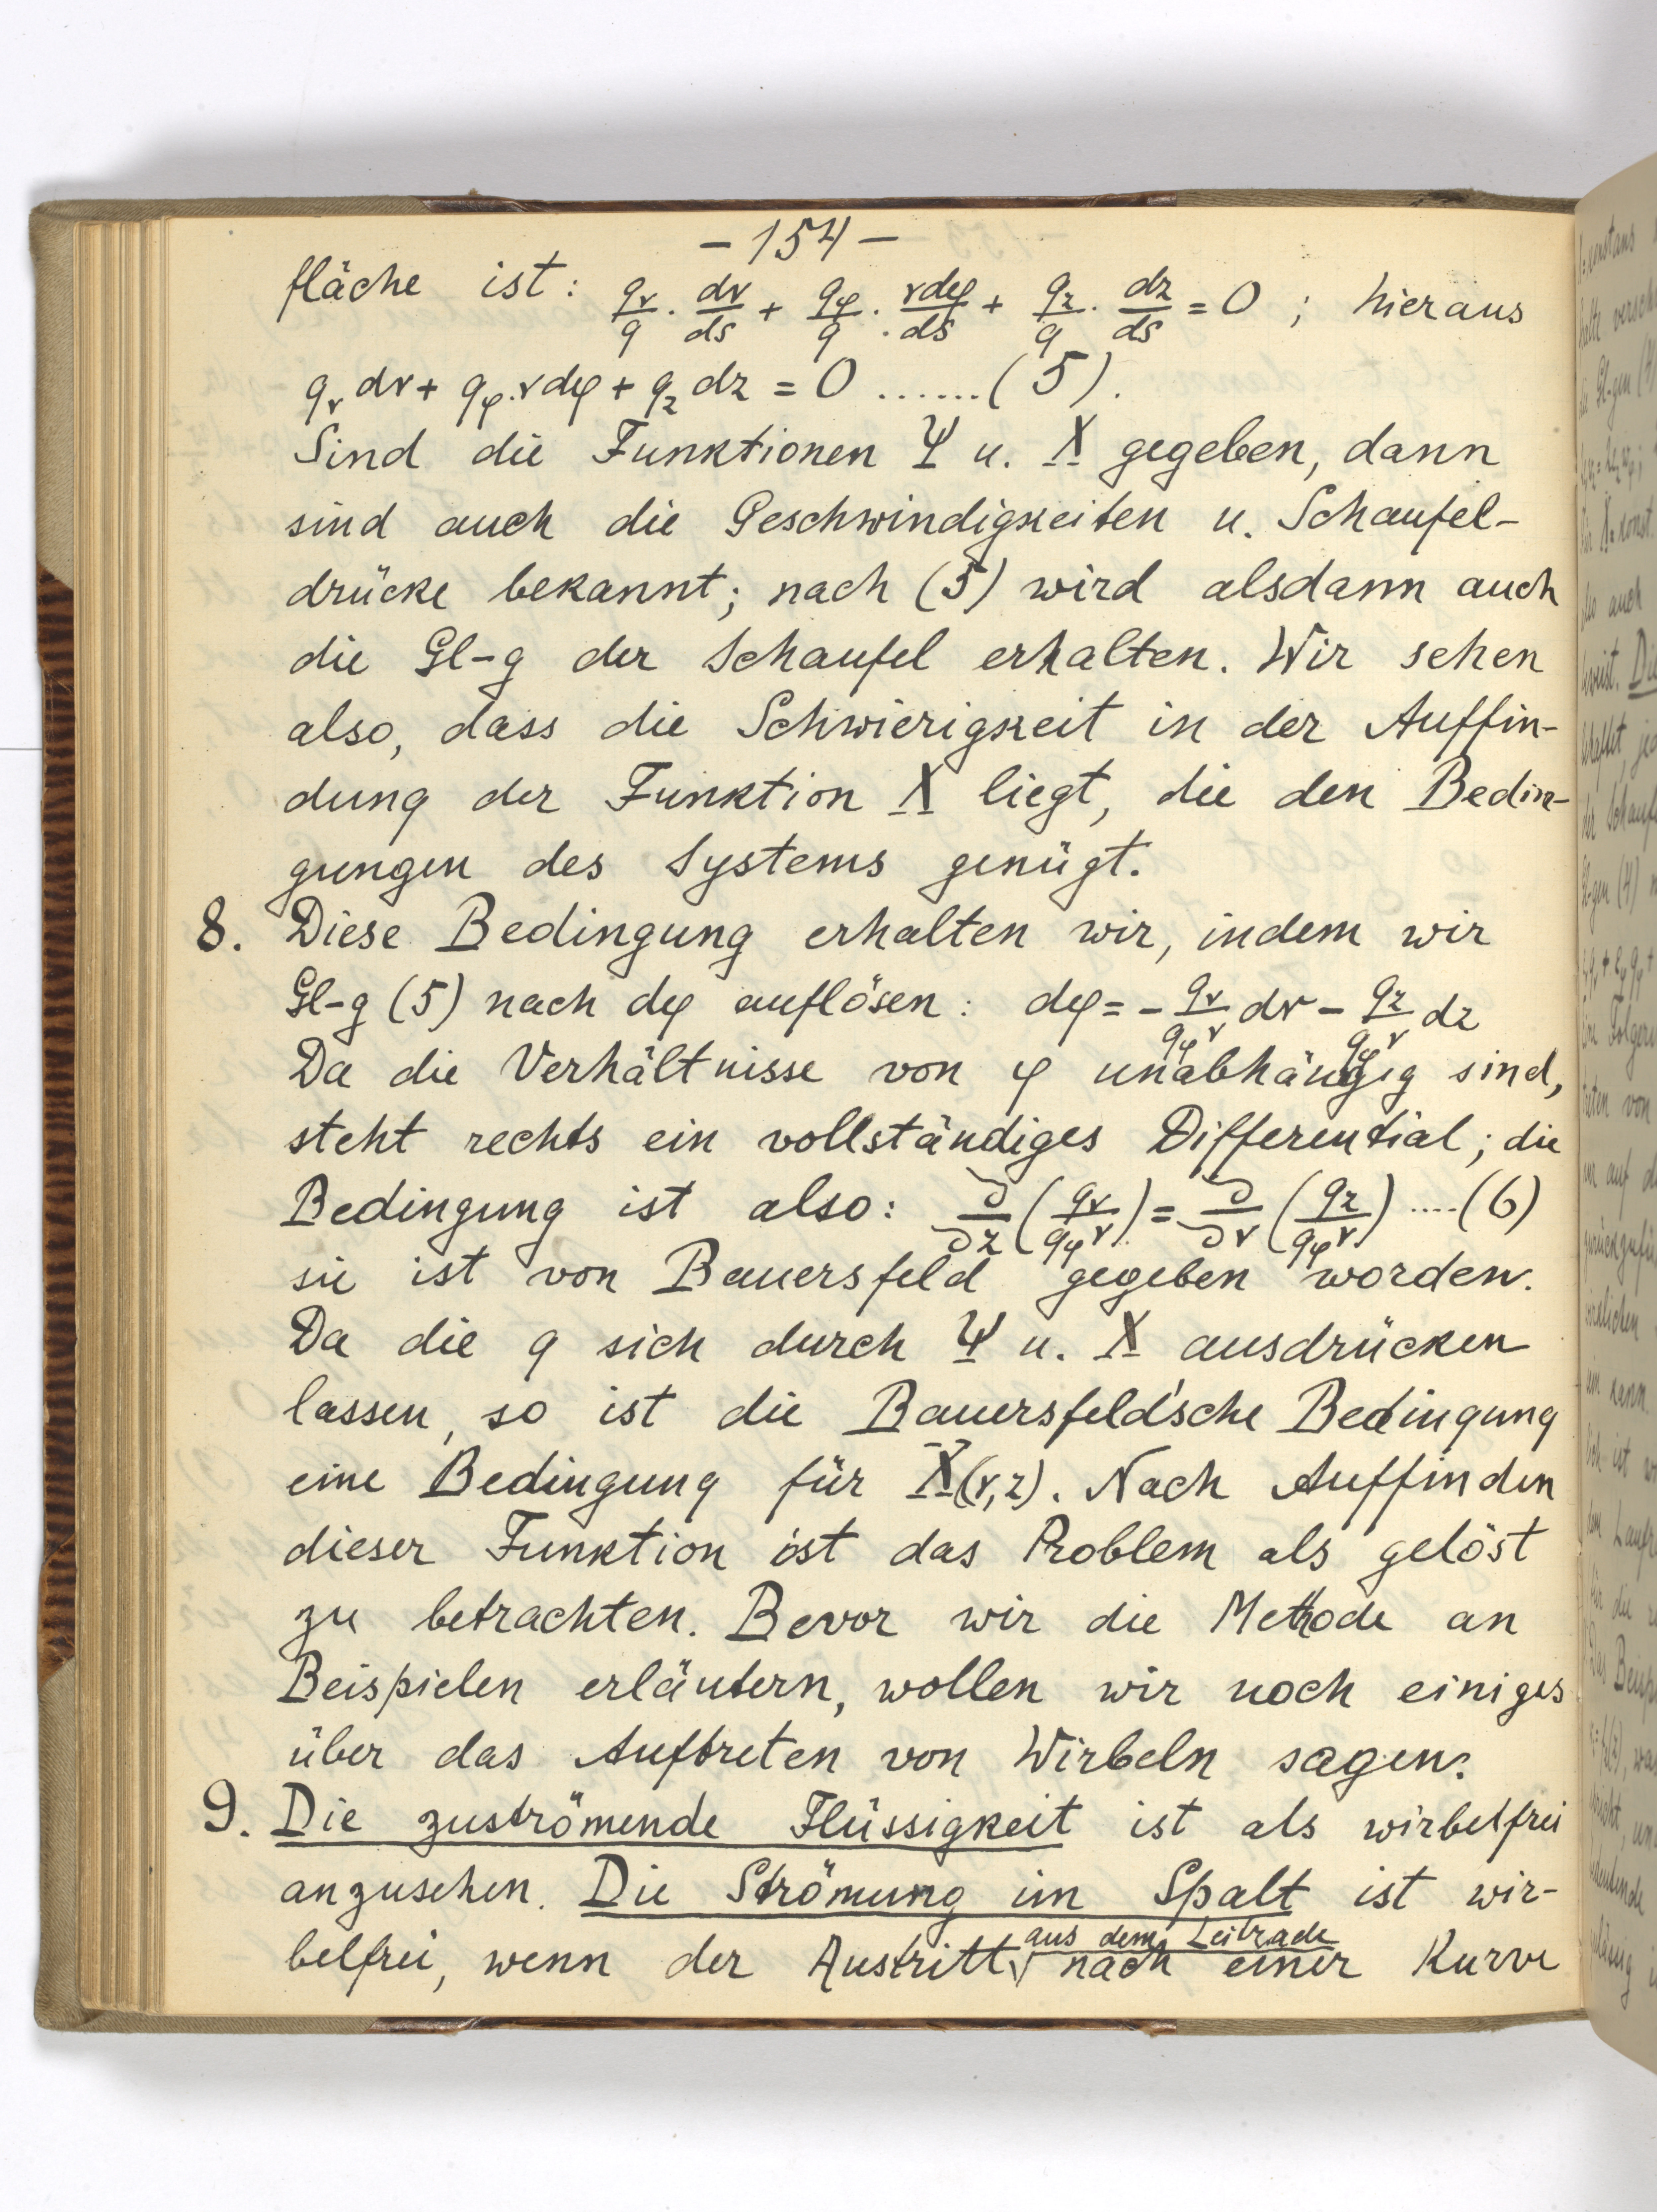 - 154 -
fläche ist: q_r/q · dr/ds + q_φ/q · rdφ/ds + q_z/q · dz/ds = 0 ; hieraus
q_r dr + q_φ · r dφ + q_z dz = 0 ......(5).
Sind die Funktionen Ψ u. X gegeben, dann
sind auch die Geschwindigkeiten u. Schaufel-
drücke bekannt; nach (5) wird alsdann auch
die Gl-g der Schaufel erhalten. Wir sehen
also, dass die Schwierigkeit in der Auffin-
dung der Funktion X liegt, die den Bedin-
gungen des Systems genügt.
8. Diese Bedingung erhalten wir, indem wir
Gl-g (5) nach dφ auflösen: dφ = - q_r/(q_φ r) dr - q_z/(q_φ r) dz
Da die Verhältnisse von φ unabhängig sind,
steht rechts ein vollständiges Differential; die
Bedingung ist also: ∂/∂z (q_r/(q_φ r)) = ∂/∂r (q_z/(q_φ r)) ....(6)
sie ist von Bauersfeld gegeben worden.
Da die q sich durch Ψ u. X ausdrücken
lassen, so ist die Bauersfeld'sche Bedingung
eine Bedingung für X(r,z). Nach Auffinden
dieser Funktion ist das Problem als gelöst
zu betrachten. Bevor wir die Methode an
Beispielen erläutern, wollen wir noch einiges
über das Auftreten von Wirbeln sagen.
9. Die zuströmende Flüssigkeit ist als wirbelfrei
anzusehen. Die Strömung im Spalt ist wir-
belfrei, wenn der Austritt aus dem Leitrade nach einer Kurve